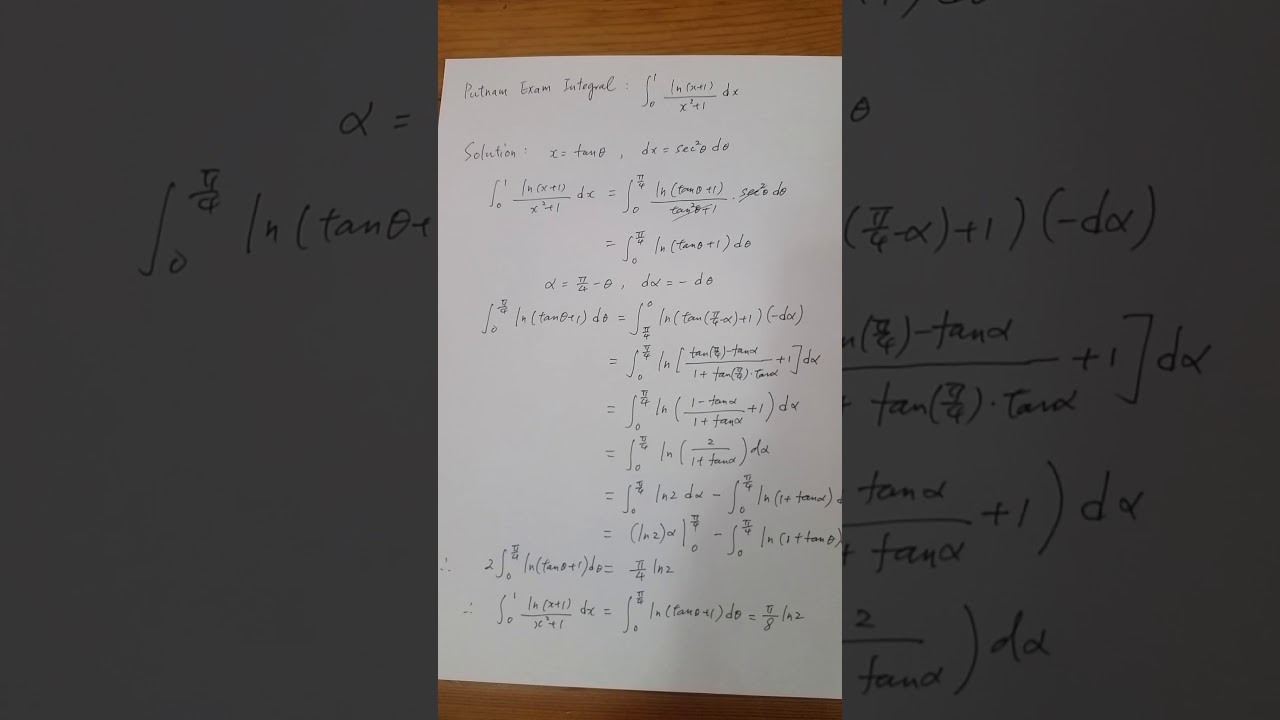 Putnam Exam Integral : ∫₀¹ ln(x+1)/(x²+1) dx
Solution : x = tanθ , dx = sec²θ dθ
∫₀¹ ln(x+1)/(x²+1) dx = ∫₀^(π/4) ln(tanθ+1)/(tan²θ+1) · sec²θ dθ
= ∫₀^(π/4) ln(tanθ+1) dθ
α = π/4 - θ , dα = - dθ
∫₀^(π/4) ln(tanθ+1) dθ = ∫_(π/4)^0 ln(tan(π/4-α)+1) (-dα)
= ∫₀^(π/4) ln [ (tan(π/4) - tanα)/(1 + tan(π/4)·tanα) + 1 ] dα
= ∫₀^(π/4) ln ( (1 - tanα)/(1 + tanα) + 1 ) dα
= ∫₀^(π/4) ln ( 2/(1 + tanα) ) dα
= ∫₀^(π/4) ln2 dα - ∫₀^(π/4) ln(1 + tanα) d
= (ln2)α |₀^(π/4) - ∫₀^(π/4) ln(1 + tanθ)
∴ 2∫₀^(π/4) ln(tanθ+1) dθ = π/4 ln2
∴ ∫₀¹ ln(x+1)/(x²+1) dx = ∫₀^(π/4) ln(tanθ+1) dθ = π/8 ln2
α =
∫₀^(π/4) ln(tanθ+
θ
(π/4-α)+1) (-dα)
n(π/4) - tanα
+ tan(π/4)·tanα + 1 ] dα
tanα
+ tanα + 1 ) dα
2
tanα ) dα